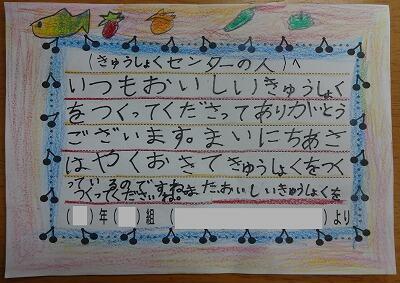 (きゅうしょくセンターの人)へ
いつもおいしいきゅうしょく
をつくってくださってありがとう
ございます。まいにちあさ
はやくおきてきゅうしょくをつく
っているのですね。また、おいしいきゅうしょくを
つくってくださいね。
( )年( )組( )より